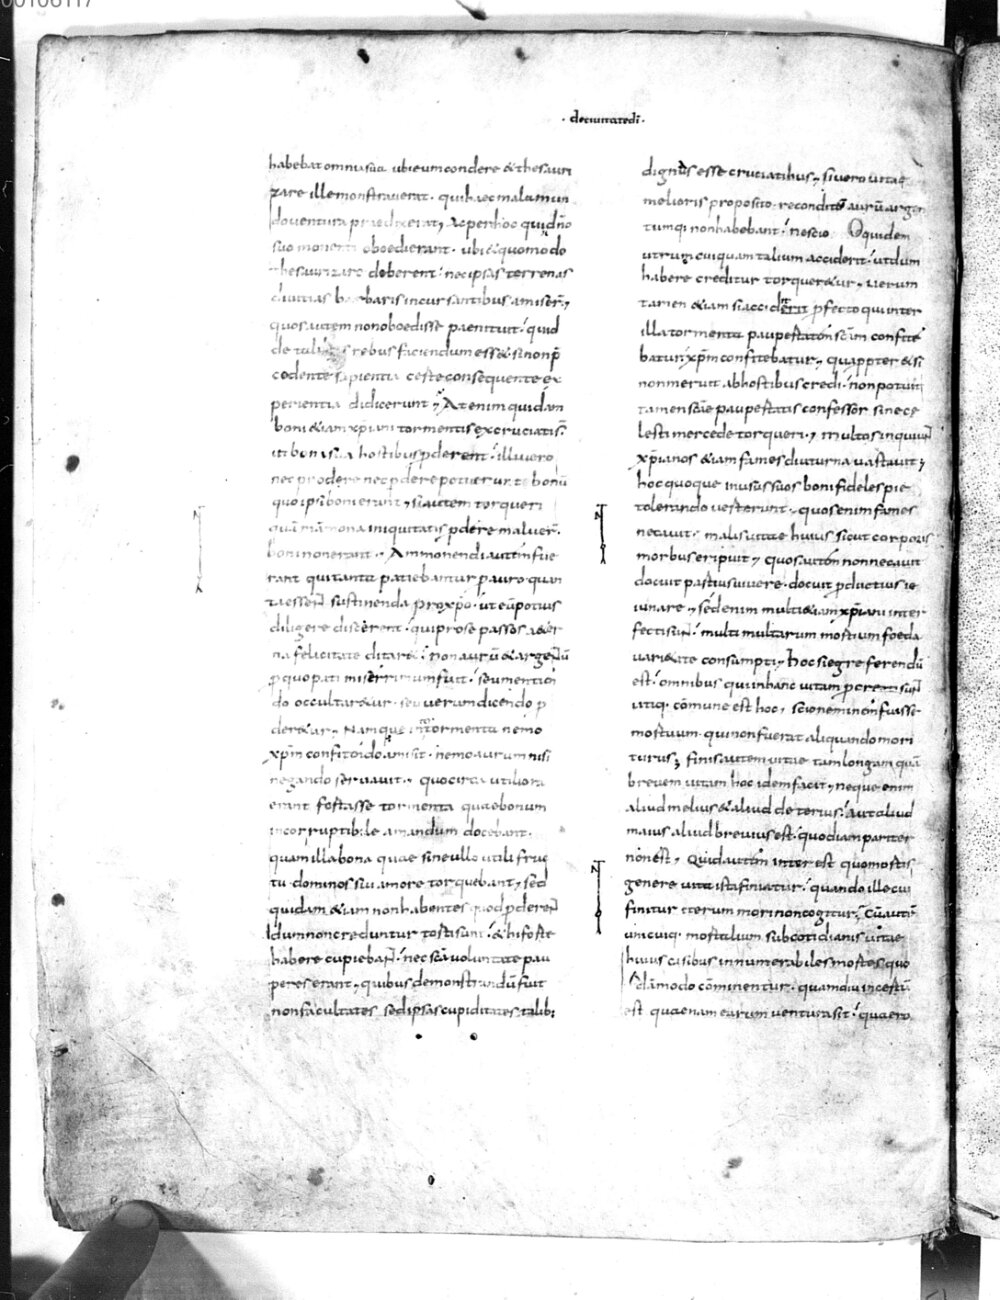 00106117
· deciuitatedi ·
habebat omnia sua ubi eum condere & thesauri
zare ille monstrauerat · qui haec mala mun
do uentura praedixerat, Ac per hoc qui dn̄o
suo monenti oboedierant · ubi & quomodo
thesaurizare deberent · nec ipsas terrenas
diuitias barbaris incursantibus amiser̄,
quos autem non oboedisse paenituit · quid
de talibus rebus faciendum ess& si non p̄
cedente sapientia certe consequente ex
perientia didicerunt, At enim quidam
boni &iam xp̄iani tormentis excruciati s̄
ut bona sua hostibus ꝓderent · illi uero
nec prodere nec ꝑdere potuerunt bonū
quo ipsi boni erant, si autem torqueri
quā māmona iniquitatis ꝓdere maluer̄
boni non erant · Ammonendi aut̄ fue
rant qui tanta patiebantur ꝓ auro quan
ta essen̄ sustinenda pro xp̄o · ut eū potius
diligere discerent · qui pro se passos a&er
na felicitate ditar& · non aurū & argentū
ꝓ quo pati miserrimum fuit · seu mentien
do occultar&ur · seu uerum dicendo ꝓ
der&ur, Namque int̄ tormenta nemo
xp̄m confitendo amisit · nemo aurum nisi
negando seruauit, quocirca utiliora
erant fortasse tormenta quae bonum
incorruptibile amandum docebant ·
quam illa bona quae sine ullo utili fruc
tu dominos sui amore torquebant, sed
quidam &iam non habentes quod ꝓderen̄
dum non creduntur torti sunt · & hi forte
habere cupieban̄ · nec scā uoluntate pau
peres erant, quibus demonstrandū fuit
non facultates sed ipsas cupiditates talib;
dignas esse cruciatibus, si uero uitae
melioris proposito recondito aurū argen
tumq; non habebant · nescio Quidem
utrum cuiquam talium acciderit · ut dum
habere creditur torquer&ur, uerum
tamen &iam si acciderit ꝓfecto qui inter
illa tormenta paupertatem sc̄am confite
batur xp̄m confitebatur, quapp̄ter &si
non meruit ab hostibus credi · non potuit
tamen sc̄ae paupertatis confessor sine ce
lesti mercede torqueri, multos inquiun̄
xp̄ianos &iam fames diuturna uastauit,
hoc quoque in usus suos boni fideles pie
tolerando uerterunt, quos enim fames
necauit · malis uitae huius sicut corporis
morbus eripuit, quos autem non necauit
docuit partius uiuere · docuit ꝓductius ie
iunare, sed enim multi &iam xp̄iani inter
fecti sun̄ · multi multarum mortium foeda
uari&ate consumpti, hoc si egre ferendū
est · omnibus qui in hanc uitam ꝓcreati sun̄
utiq; cōmune est hoc, scio neminem fuisse
mortuum · qui non fuerat aliquando mori
turus; finis autem uitae tam longam quā
breuem uitam hoc idem facit, neque enim
aliud melius & aliud deterius · aut aliud
maius aliud breuius est · quod iam pariter
non est, Quid autem inter est quo mortis
genere uita ista finiatur · quando ille cui
finitur iterum mori non cogitur, Cū autē
unicuiq; mortalium sub cotidianis uitae
huius casibus innumerabiles mortes quo
dam modo cōminentur · quamdiu incertū
est quaenam earum uentura sit · quaero